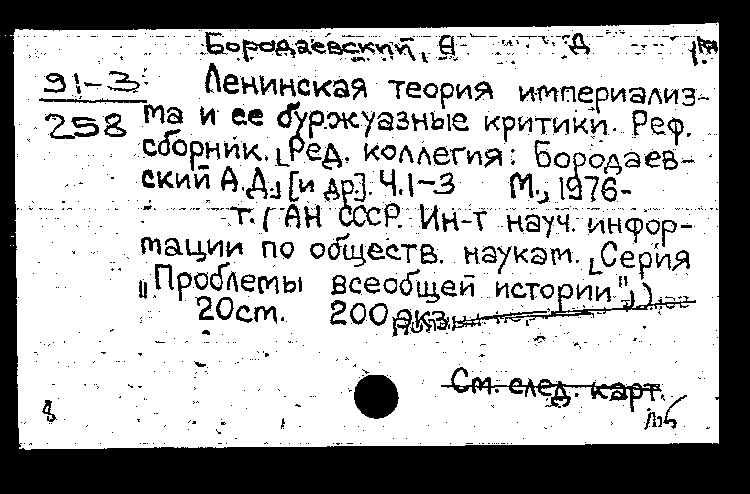 Бородаевский, А Д
91-3 Ленинская теория империализ-
258 ма и ее буржуазные критики. Реф.
сборник. [Ред. коллегия: Бородаев-
ский А.Д.] [и др.]. Ч.1-3 М., 1976-
т. (АН СССР. Ин-т науч. инфор-
мации по обществ. наукам. [Серия
"Проблемы всеобщей истории"])
20см. 200 экз.
См. след. карт.